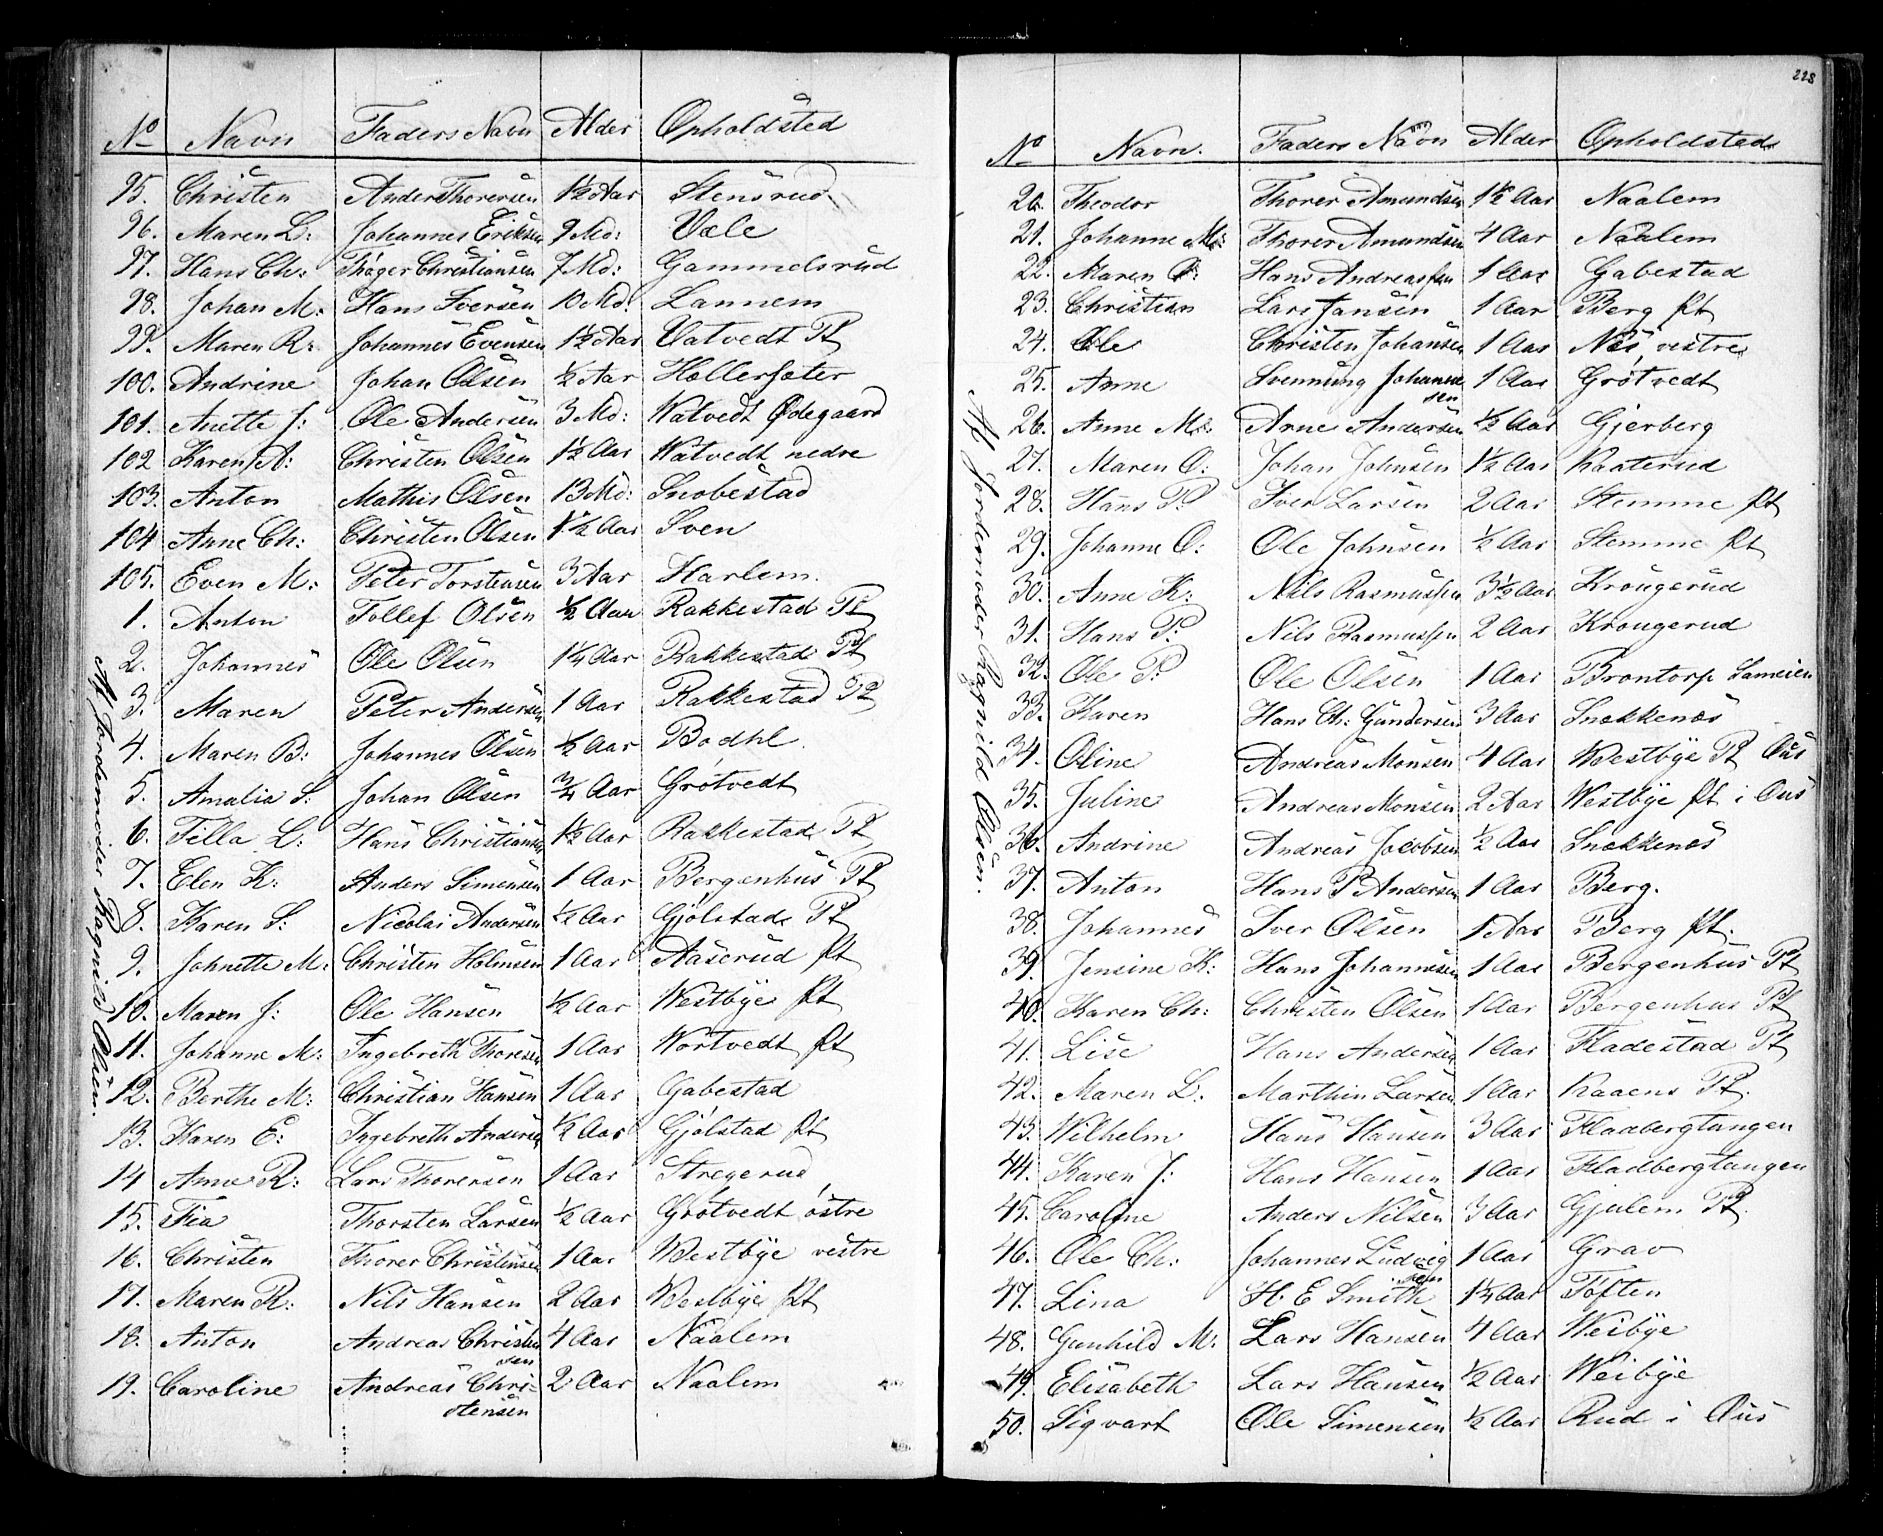 No Navn Faders Navn Alder Opholdsted
95. Christen Anders Thoresen 1½ Aar Stensrud
96. Maren L: Johannes Eriksen 9 Md: Væle
97. Hans Ch: Thøger Christiansen 7 Md: Gammelsrud
98. Johan M: Hans Iversen 10 Md. Lannem
99. Maren R: Johannes Evensen 1½ Aar Vatvedt Pt
100. Andrine Johan Olsen ½ Aar Hollersæter
101. Anette J: Ole Andersen 3 Md: Watvedt Ødegaard
102 Karen A: Christen Olsen 1½ Aar Watvedt nedre
103. Anton Mathis Olsen 13 Md: Snobestad
104 Anne Ch: Christen Olsen 1½ Aar Sven
105. Even M: Peter Torstensen 3 Aar Harlem.
1. Anton Tollef Olsen ½ Aar Rakkestad Pt
2. Johannes Ole Olsen 1¼ Aar Rakkestad Pt
3. Maren Peter Andersen 1 Aar Rakkestad Pt
4. Maren B: Johannes Olsen ½ Aar Bodhl.
5. Amalia S: Johan Olsen ¾ Aar Grøtvedt
6. Tilla L: Hans Christiansen 1½ Aar Rakkestad Pt
7. Elen K: Anders Simensen 1 Aar Bergenhus Pt
8. Karen S: Nicolai Andersen ½ Aar Gjølstad Pt
9. Johnette M: Christen Holmsen 1 Aar Aaserud Pt
10. Maren J: Ole Hansen ½ Aar Westbye Pt
11. Johanne M: Ingebreth Thoresen 1 Aar Wortvedt Pt
12. Berthe M: Christian Hansen 1 Aar Gabestad
13. Karen E: Ingebreth Andersen ½ Aar Gjølstad Pt
14 Anne R: Lars Thorersen 1 Aar Stregerud
15. Fia Thorsten Larsen ½ Aar Grøtvedt østre
16. Christen Thorer Christensen 1 Aar Westbye vestre
17. Maren R: Nils Hansen 2 Aar Westbye Pt
18. Anton Andreas Christen
sen 4 Aar Naalem
19. Caroline Andreas Chri-
stensen 2 Aar Naalem
Af Jordemoder Ragnild Olsen.
228
No Navn. Faders Navn Alder Opholdsted
20. Theodor Thorer Amundsen 1½ Aar Naalem
21. Johanne M: Thorer Amundsen 4 Aar Naalem
22. Maren O: Hans Andreassen 1 Aar Gabestad
23. Christian Lars Jansen 1 Aar Berg Pt
24. Ole Christen Johansen 1 Aar Næs, vestre
25. Anne Svennung Johan
sen 1 Aar Grøtvedt
26. Anne M: Arne Andersen ½ Aar Gjerberg
27. Maren O: Johan Johnsen 1½ Aar Kaaterud
28. Hans P: Iver Larsen 2 Aar Stemme Pt
29. Johanne O: Ole Johnsen ½ Aar Stemme Pt
30. Anne K: Nils Rasmussen 3½ Aar Krougerud
31. Hans P: Nils Rasmussen 2 Aar Krougerud
32. Ole P: Ole Olsen 1 Aar Brontorp Sameien
33. Karen Hans Ch: Gundersen 3 Aar Snekkenæs
34. Oline Andreas Monsen 4 Aar Westbye Pt Aas
35. Juline Andreas Monsen 2 Aar Westbye Pt i Aas
36. Andrine Andreas Jacobsen ½ Aar Snekkenæs
37. Anton Hans P Andersen 1 Aar Berg.
38. Johannes Iver Olsen 1 Aar Berg Pt.
39. Jensine K: Hans Johannesen 1 Aar Bergenhus Pt
40. Karen Ch: Christen Olsen 1 Aar Bergenhus Pt
41. Lise Hans Andersen 1 Aar Fladestad Pt
42. Maren L: Marthin Larsen 1 Aar Kaaens Pt.
43. Wilhelm Hans Hansen 3 Aar Fladbergtangen
44. Karen J: Hans Hansen 1 Aar Fladbergtangen
45. Caroline Anders Nilsen 3 Aar Gjulem Pt
46. Ole Ch: Johannes Ludvig
sen 1 Aar Grav
47. Lina H. E Smith 1¼ Aar Toften
48. Gunhild M: Lars Hansen 4 Aar Weibye
49. Elisabeth Lars Hansen ½ Aar Weibye
50. Sigvart Ole Simensen ½ Aar Rud i Aas
Af Jordemoder Ragnild Olsen.